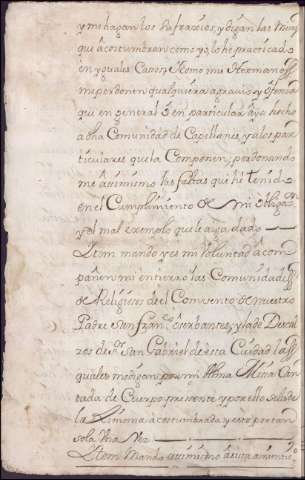 y me hagan los sufragios, y digan las Misas
que acostumbran como yo, lo he practicado
en yguales Casos, y como mis Hermanos
me perdonen qualquiera agravio, y ofensa
que en general ó en particular aya hecho
a dha Comunidad de Capellanes, y a los par-
ticulares que la Componen, perdonando
me assimismo las faltas que hé tenido
en el Cumplimiento de mi obligaon
y el mal exemplo que les aya dado
Ytem mando y es mi voluntad acom-
pañen mi entierro las Comunidades
de Religiosos del Convento de nuestro
Padre San Franco observantes, y la de Descal-
zos de Sn San Gabriel de esta Ciudad las
quales me digan por mi Alma Missa Can-
tada de Cuerpo presente y por ello se les de
la Limosna acostumbrada y esto por tan
sola Una Vez
Ytem Mando assimismo